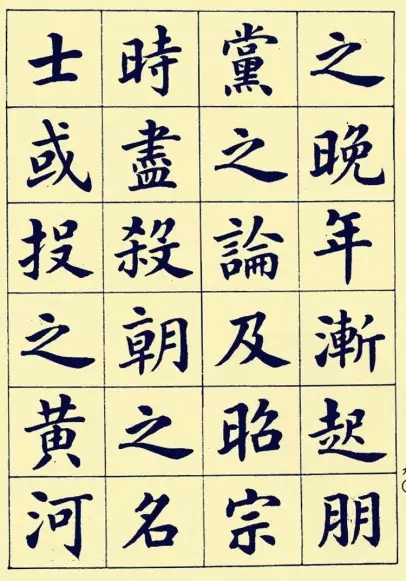 之晚年漸起朋
黨之論及昭宗
時盡殺朝之名
士或投之黄河